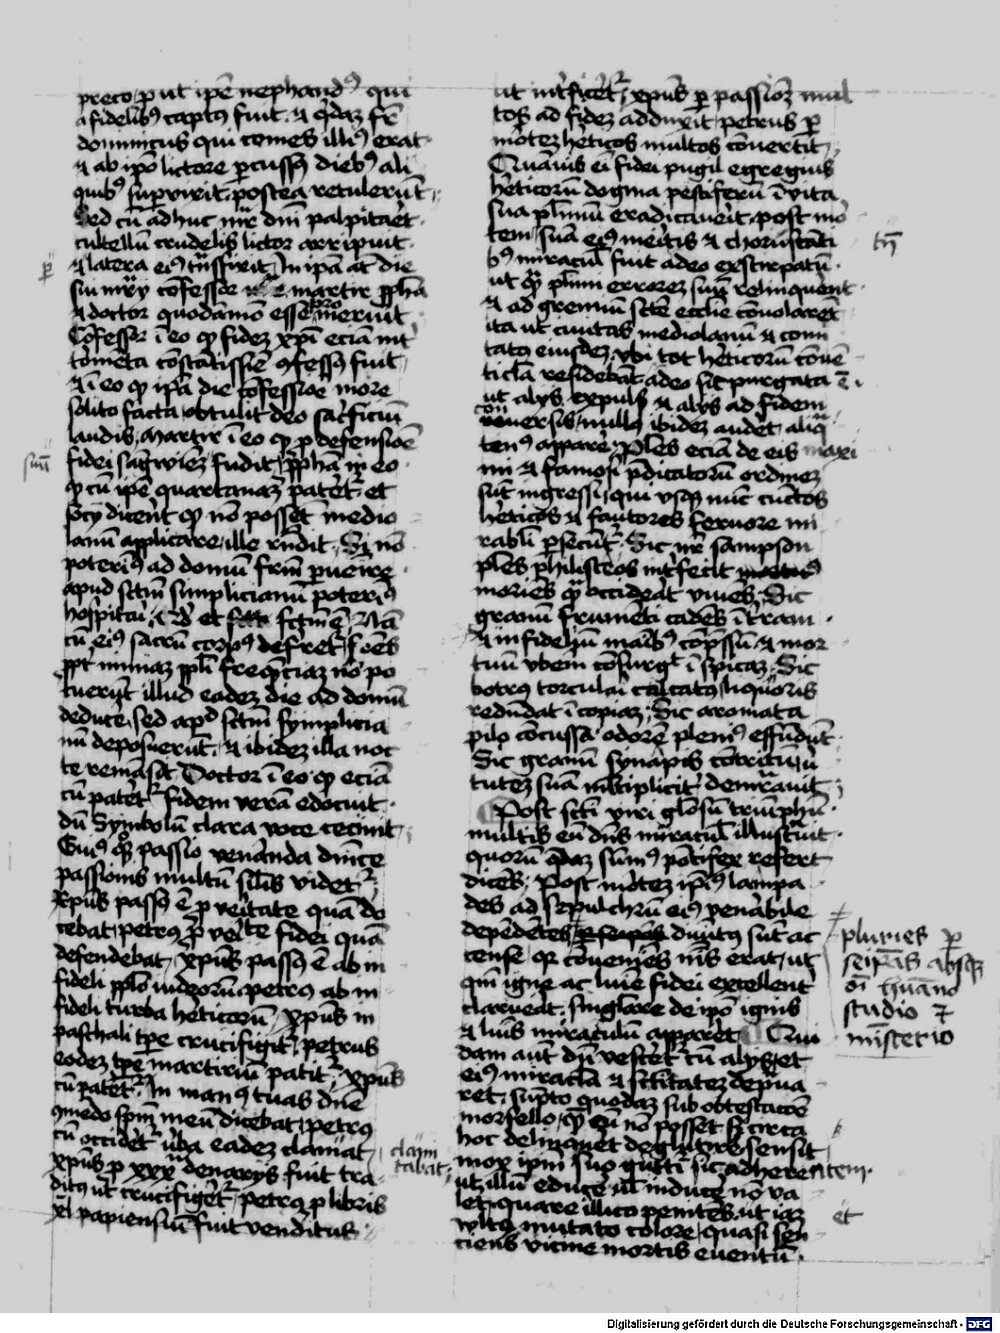 preco, put ipē nephandꝰ qui
a fidelibꝰ captꝰ fuit. ⁊ q̄daꝫ fr̄
dominicus qui comes illiꝰ erat.
⁊ ab ip̄o lictore ꝑcussꝰ diebꝰ ali
quibꝰ suꝑvixit. postea retulerūt.
Sed cū adhuc mr̄ dn̄i palpitaꝛet.
cultellū crudelis lictor arripuit.
⁊ latera eiꝰ tͣnsfixit, In ip̄a aūt die
sui mr̄ij cōfessor martir ꝓph̄a
⁊ doctor quodāmō esse ꝓmeruit.
Cōfessor ī eo qꝫ fideꝫ xp̄i eciā int̄
tormēta cōstātissīe ꝯfessꝰ fuit.
⁊ ī eo qꝫ ip̄a die cōfessiōe more
solito facta, obtulit deo sacͥficiū
laudis, Martir ī eo qꝫ ꝓ defensiōe
fidei sāgwīeꝫ fudit, ꝓph̄a ī eo
qꝫ cū ip̄e quartanaꝫ pateret̄. et
socij dicerēt qꝫ nō possēt medio
lanū applicare, ille rn̄dit. Si nō
poterimꝰ ad domū frm̄ ꝑuenire
apud sctm̄ simplicianū poterimꝰ
hospitari, et fctm̄ ē, Nā
cū eiꝰ sacrū corpꝰ deferret̄, frēs
ꝓpt̄ nimiaꝫ pp̄li frequēciaꝫ nō po
tuerūt illud eadeꝫ die ad domū
deduce, sed apd̄ sctm̄ symplicia
nū deposuerūt. ⁊ ibideꝫ illa noc
te remāsit. Doctor ī eo qꝫ eciā
cū pateret̄ fidem verā edocuit.
dū Symbolū clara voce cecinit.
Eiuꝰ qꝫ passio venāda dn̄ice
passionis multū sil̄is videt̄.
Xpūs passꝰ ē ꝓ v̄itate quā do
cebat, petrꝰ ꝓ v̄ite fidei quā
defendebat. xpūs passꝰ ē ab in
fideli pp̄lo iudeorū, petrꝰ ab in
fideli turba het̄icorū, Xpūs in
paschali tp̄e crucifigit̄, petrus
eodeꝫ tp̄e martiriū patit̄, xpūs
cū pateret̄. In manꝰ tuas dn̄e
ꝯmēdo spm̄ meū dicebat, petrꝰ
cū occidēt̄ v̄ba eadeꝫ clamat̄
xpūs ꝓ xxx denarijs fuit tra
ditꝰ ut crucifigēt̄, petrꝰ ꝓ libris
xl papiensiū fuit venditus.
ꝑ
suū
clam
tabat
ut int̄ficeret̄, xpūs ꝑ passionꝫ mul
tos ad fideꝫ adduxit, petrus ꝑ
morteꝫ het̄icos multos cōvertit,
Quāvis ei fidei pugil egregius
het̄icorū dogma pestiferū ī vita
sua pl̄imū eradicaverit. post mor
tem, suā eiꝰ meritis ⁊ choruscāti
bꝰ miracul̄ fuit adeo exstirpatū
ut qꝫ pl̄imi errorez suū relinquerēt
⁊ ad gremiū scte ecclie cōvolarēt
ita ut civitas mediolanū ⁊ comi
tatꝰ eiusdeꝫ, ubi tot het̄icorū cōvē
ticla residebāt, adeo sit purgata ē,
ut alijs expulsꝭ ⁊ alijs ad fidem
con
versis, nullꝰ ibideꝫ audet aliq̄
tenꝰ apparere, Pl̄es eciā de eis maxi
mi ⁊ famosi p̄dicatorū ordineꝫ
sūt ingressi, qui usqꝫ nūc cūctos
het̄icos ⁊ fautores fervore mi
rabl̄i ꝑsecūt̄, Sic nr̄ sampson
pl̄es philisteos int̄fecit
moriēs qꝫ occiderat vivēs, Sic
granū frumēti cadēs ī terram
⁊ infideliū manibꝰ cōpssū, ⁊ mor
tuū uberem cōsurgit ī spicaꝫ, Sic
botrus torculari calcatꝰ, liquoris
redūdat ī copiaꝫ, Sic aromata
pilo cōcussa odorē pleniꝰ effūdūt.
Sic granū synapis cōtritū, v̄
tutez suā multiplicit̄ demrāvit,
Post scti viri gl̄osū triūphū
multis eū dn̄s miracul̄ illustravit
quorū q̄daꝫ sūmꝰ pōtifex refert
dicēs; Post morteꝫ ipiꝰ lampa
des ad sepulchrū eiꝰ venābile
depēdētes, divinitꝰ sūt ac
cense, qꝫ cōveniēs nīs erat, ut
qui igne ac lumīe fidei excellent̄
claruerat, singlare de ip̄o ignis
⁊ lumīs miraculū appareret. Qui
dam aūt dū vescet̄ cū alijs, et
eiꝰ miracla ⁊ sctitateꝫ dep̄va
ret, sūpto quodaꝫ sub obtestacōe
morsello, qꝫ eū nō posset, si circa
hoc delinqueret deglutire, sensit
mox ip̄m suo gutt̄i sic adherentem.
ut illū educe ul̄ induce nō va
let, quare illico penitēs, ut iaꝫ
vultꝰ mutato colore, quasi sen
ciens vicine mortis eventū.
tn̄
pluries ꝑ
seip̄as absqꝫ
oī humano
studio ⁊
mīsterio
et
Digitalisierung gefördert durch die Deutsche Forschungsgemeinschaft - DFG